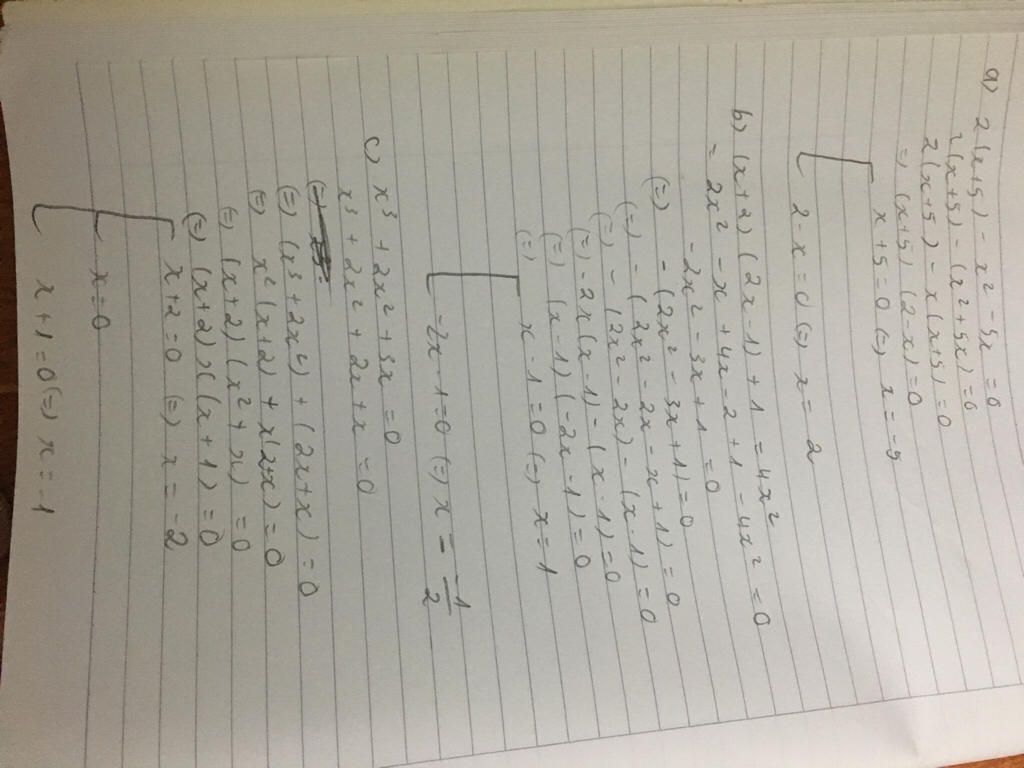 a) 2(x+5) - x² - 5x = 0
2(x+5) - (x² + 5x) = 0
2(x+5) - x(x+5) = 0
=) (x+5) (2-x) = 0
[ x + 5 = 0 (=) x = -5
2 - x = 0 (=) x = 2
b) (x+2) (2x-1) + 1 = 4x²
= 2x² - x + 4x - 2 + 1 - 4x² = 0
- 2x² - 3x + 1 = 0
(=) - (2x² - 3x + 1) = 0
(=) - (2x² - 2x - x + 1) = 0
(=) - (2x² - 2x) - (x - 1) = 0
(=) - 2x (x - 1) - (x - 1) = 0
(=) (x - 1) (-2x - 1) = 0
(=) [ x - 1 = 0 (=) x = 1
-2x - 1 = 0 (=) x = -1/2
c) x³ + 2x² + 3x = 0
x³ + 2x² + 2x + x = 0
(=) (x³ + 2x²) + (2x + x) = 0
(=) x² (x + 2) + x (2+x) = 0
(=) (x+2) (x² + x) = 0
(=) (x+2) x (x + 1) = 0
[ x + 2 = 0 (=) x = -2
[ x = 0
x + 1 = 0 (=) x = -1